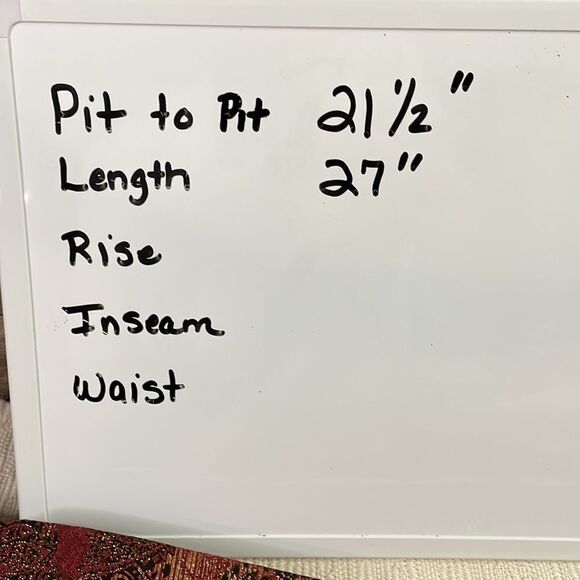 Pit to Pit 21 1/2"
Length 27"
Rise
Inseam
Waist